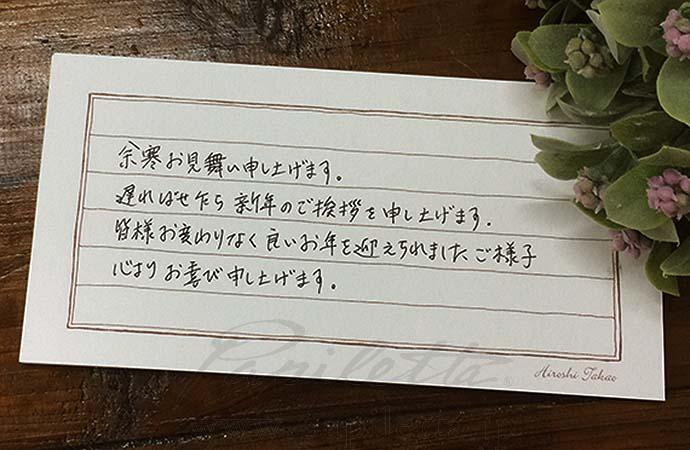 余寒お見舞い申し上げます。
遅ればせ乍ら 新年のご挨拶を申し上げます.
皆様お変わりなく良いお年を迎えられましたご様子
心よりお喜び申し上げます。
Papilotta
Hiroshi Takao